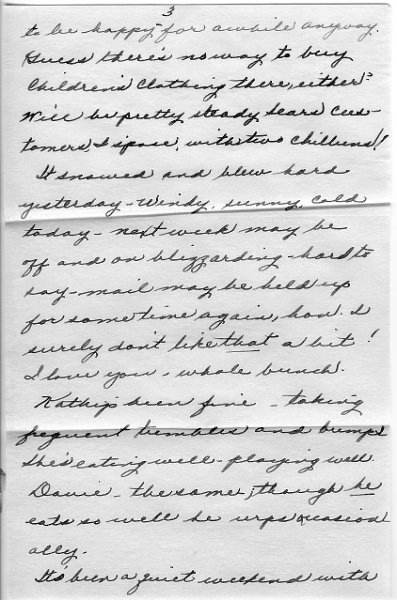 3
to be happy for awhile anyway.
Guess there's no way to buy
Children's Clothing there, either?
Will be pretty steady Sears Cus-
tomers, I spose, with two chilluns!
It snowed and blew hard
yesterday - Windy, sunny, cold
today - next week may be
off and on blizzarding - hard to
say - mail may be held up
for some time again, hon. I
surely don't like that a bit!
I love you - whole bunch.
Kathy's been fine - taking
frequent tumbles and bumps
She's eating well - playing well
Davie - the same, though he
eats so well he urps occasion
ally.
It's been a quiet weekend with